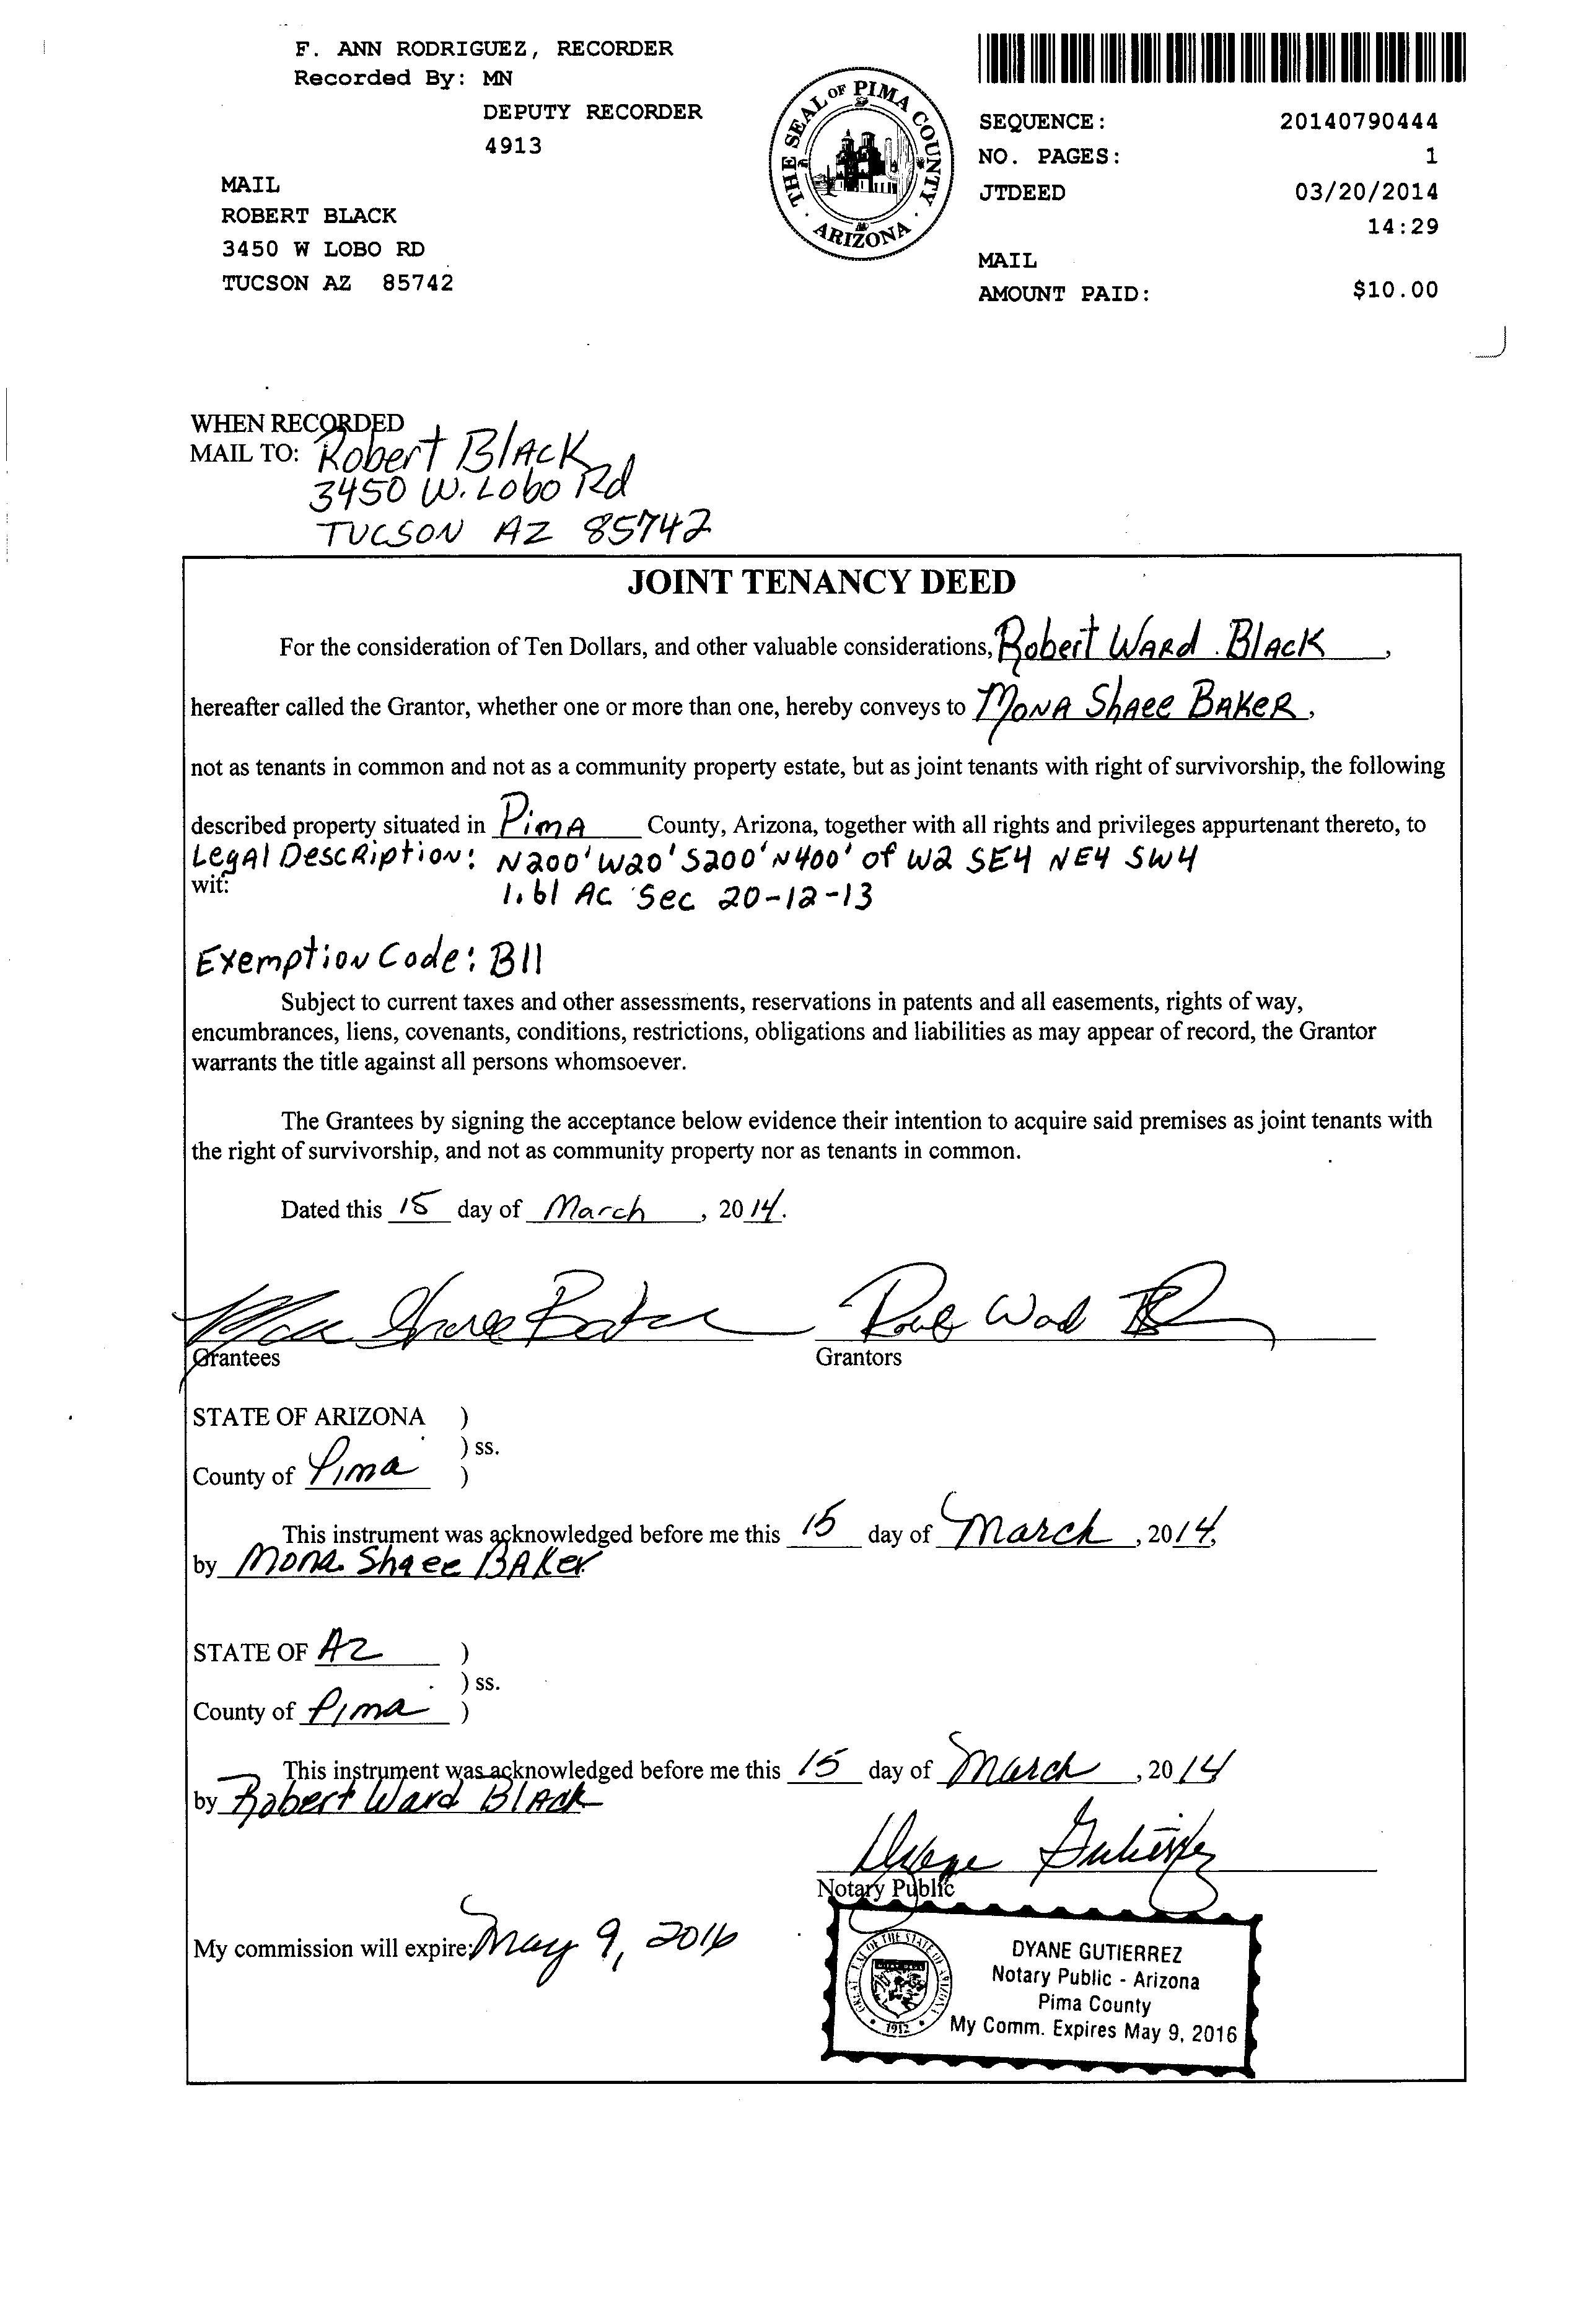 F. ANN RODRIGUEZ, RECORDER
Recorded By: MN
DEPUTY RECORDER
4913
MAIL
ROBERT BLACK
3450 W LOBO RD
TUCSON AZ 85742
THE SEAL OF PIMA COUNTY
ARIZONA
SEQUENCE: 20140790444
NO. PAGES: 1
JTDEED 03/20/2014
14:29
MAIL
AMOUNT PAID: $10.00
WHEN RECORDED
MAIL TO: Robert Black
3450 W. Lobo Rd
TUCSON AZ 85742
JOINT TENANCY DEED
For the consideration of Ten Dollars, and other valuable considerations, Robert Ward Black,
hereafter called the Grantor, whether one or more than one, hereby conveys to Mona Shaee Baker,
not as tenants in common and not as a community property estate, but as joint tenants with right of survivorship, the following
described property situated in Pima County, Arizona, together with all rights and privileges appurtenant thereto, to
Legal Description: N200' W20' S200' N400' of W2 SE4 NE4 SW4
wit:
1.61 AC Sec 20-12-13
Exemption Code: B11
Subject to current taxes and other assessments, reservations in patents and all easements, rights of way,
encumbrances, liens, covenants, conditions, restrictions, obligations and liabilities as may appear of record, the Grantor
warrants the title against all persons whomsoever.
The Grantees by signing the acceptance below evidence their intention to acquire said premises as joint tenants with
the right of survivorship, and not as community property nor as tenants in common.
Dated this 15 day of March, 2014.
Mona Shaee Baker Robert Ward B
Grantees Grantors
STATE OF ARIZONA )
) ss.
County of Pima )
This instrument was acknowledged before me this 15 day of March, 2014,
by Mona Shaee Baker
STATE OF AZ )
) ss.
County of Pima )
This instrument was acknowledged before me this 15 day of March, 2014
by Robert Ward Black
Dyane Gutierrez
Notary Public
My commission will expire: May 9, 2016
GREAT SEAL OF THE STATE OF ARIZONA
1912
DYANE GUTIERREZ
Notary Public - Arizona
Pima County
My Comm. Expires May 9, 2016